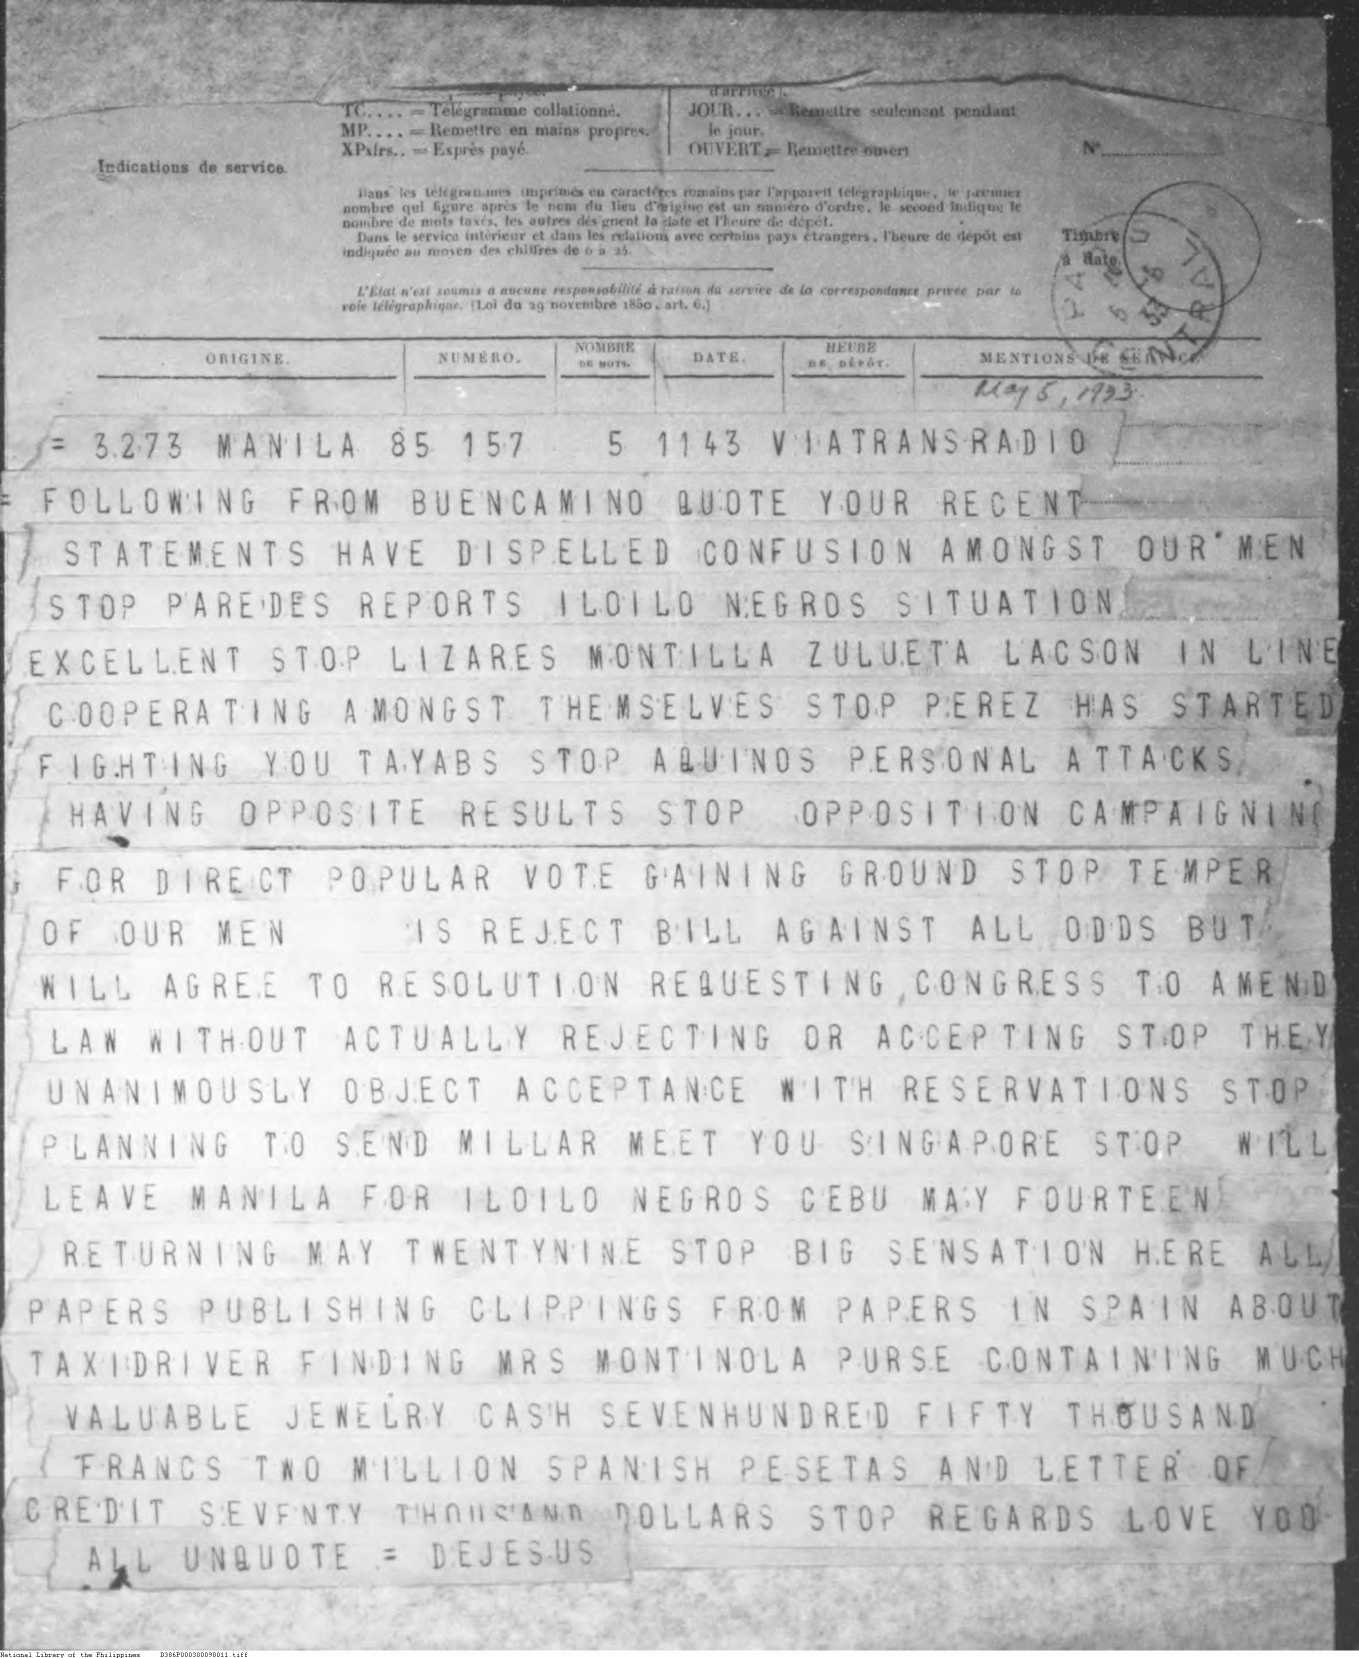 TC.... = Télégramme collationné.
MP.... = Remettre en mains propres.
XPxfrs.. = Exprès payé.
d'arrivée).
JOUR... = Remettre seulement pendant
le jour.
OUVERT = Remettre ouvert
Indications de service.
N°
Dans les télégrammes imprimés en caractères romains par l'appareil télégraphique, le premier
nombre qui figure après le nom du lieu d'origine est un numéro d'ordre, le second indique le
nombre de mots taxés, les autres désignent la date et l'heure de dépôt.
Dans le service intérieur et dans les relations avec certains pays étrangers, l'heure de dépôt est
indiquée au moyen des chiffres de 0 à 24.
Timbre
à date.
L'État n'est soumis à aucune responsabilité à raison du service de la correspondance privée par la
voie télégraphique. (Loi du 29 novembre 1850, art. 6.)
ORIGINE. NUMÉRO. NOMBRE DE MOTS. DATE. HEURE DE DÉPÔT. MENTIONS DE SERVICE
May 5, 1933
= 3273 MANILA 85 157 5 1143 VIATRANSRADIO
= FOLLOWING FROM BUENCAMINO QUOTE YOUR RECENT
STATEMENTS HAVE DISPELLED CONFUSION AMONGST OUR MEN
STOP PAREDES REPORTS ILOILO NEGROS SITUATION
EXCELLENT STOP LIZARES MONTILLA ZULUETA LACSON IN LINE
COOPERATING AMONGST THEMSELVES STOP PEREZ HAS STARTED
FIGHTING YOU TAYABS STOP AQUINOS PERSONAL ATTACKS
HAVING OPPOSITE RESULTS STOP OPPOSITION CAMPAIGNING
FOR DIRECT POPULAR VOTE GAINING GROUND STOP TEMPER
OF OUR MEN IS REJECT BILL AGAINST ALL ODDS BUT
WILL AGREE TO RESOLUTION REQUESTING CONGRESS TO AMEND
LAW WITHOUT ACTUALLY REJECTING OR ACCEPTING STOP THEY
UNANIMOUSLY OBJECT ACCEPTANCE WITH RESERVATIONS STOP
PLANNING TO SEND MILLAR MEET YOU SINGAPORE STOP WILL
LEAVE MANILA FOR ILOILO NEGROS CEBU MAY FOURTEEN
RETURNING MAY TWENTYNINE STOP BIG SENSATION HERE ALL
PAPERS PUBLISHING CLIPPINGS FROM PAPERS IN SPAIN ABOUT
TAXIDRIVER FINDING MRS MONTINOLA PURSE CONTAINING MUCH
VALUABLE JEWELRY CASH SEVENHUNDRED FIFTY THOUSAND
FRANCS TWO MILLION SPANISH PESETAS AND LETTER OF
CREDIT SEVENTY THOUSAND DOLLARS STOP REGARDS LOVE YOU
ALL UNQUOTE = DEJESUS
National Library of the Philippines D386P000300098011.tiff